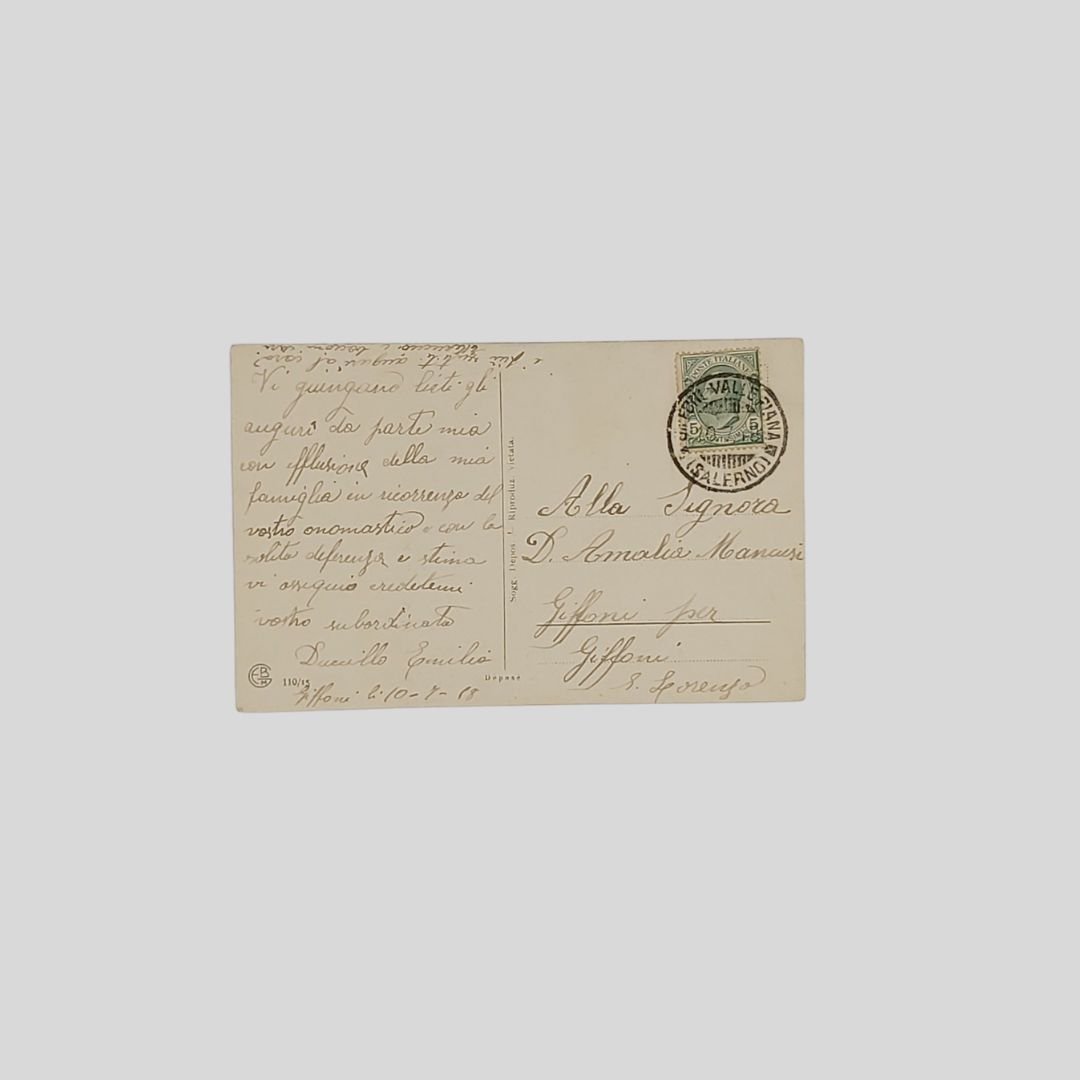 Vi giungano lieti gli
auguri da parte mia
con effusione della mia
famiglia in ricorrenza del
vostro onomastico e con la
solita deferenza e stima
vi ossequio credetemi
vostro subordinato
Emilio
Giffoni li 10-7-18
110/15
Depose
Sogg. Depos. Riproduz. vietata.
POSTE ITALIANE
5 5
(SALERNO)
Alla Signora
D. Amalia Mancusi
Giffoni per
Giffoni
S. Lorenzo